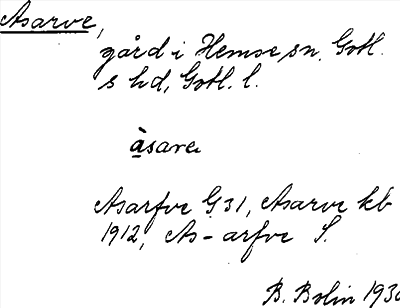 Asarve,
gård i Hemse sn, Gotl.
s hd, Gotl. l.
àsarε
Asarfve G 31, Asarve kb
1912, As-arfve S.
B. Bolin 193